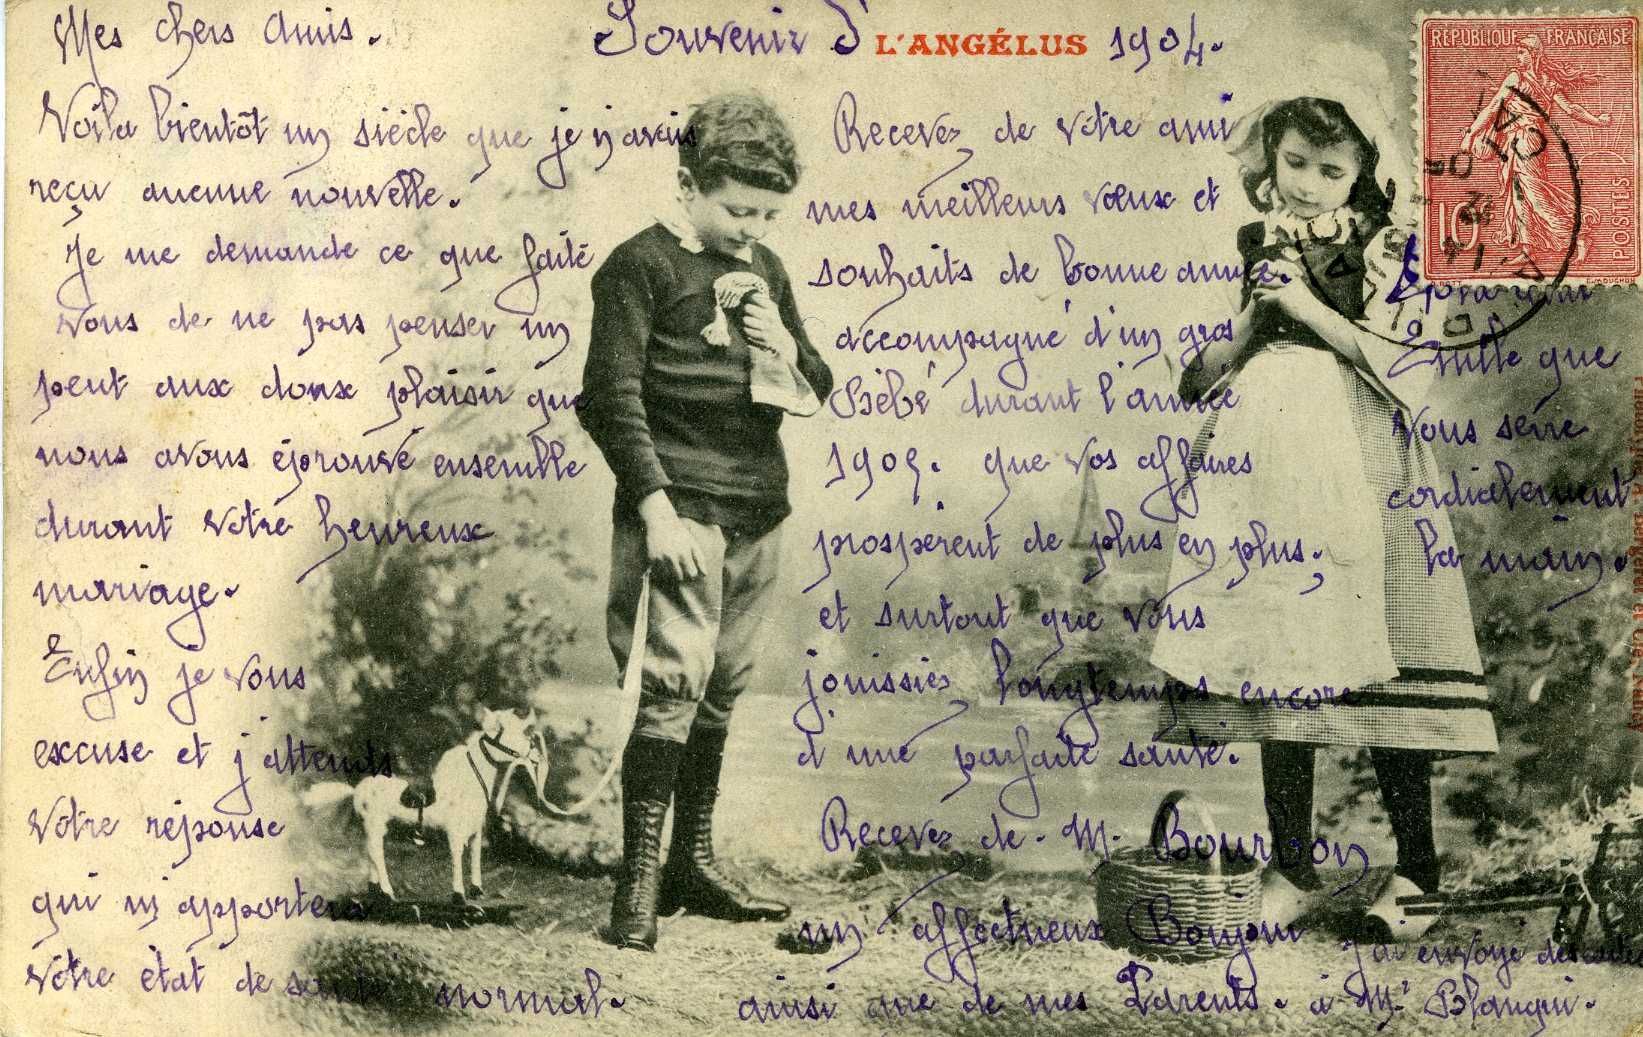 Mes chers Amis.
Souvenir d'
L'ANGÉLUS
1904.
Voila bientôt un siècle que je n'avais
reçu aucune nouvelle.
Je me demande ce que faite
vous de ne pas penser un
peut aux doux plaisir que
nous avons éprouvé ensemble
durant votre heureux
mariage.
Enfin je vous
excuse et j'attends
votre réponse
qui m'apportera
votre état de santé normal.
Recevez de votre ami
mes meilleurs vœux et
souhaits de bonne année.
accompagné d'un gros
Bébé durant l'année
1905. que vos affaires
prospèrent de plus en plus.
et surtout que vous
jouissiés longtemps encore
d'une parfaite santé.
Recevez de M. Bourbon
un affectueux Bonjour
ainsi que de mes Parents.
Emile que
vous serre
cordialement
la main.
J'ai envoyé des cartes
à Mr Blanqui.
RÉPUBLIQUE FRANÇAISE
10
POSTES
E. MOUCHON
Phototypie A. Bergeret et Cie Nancy